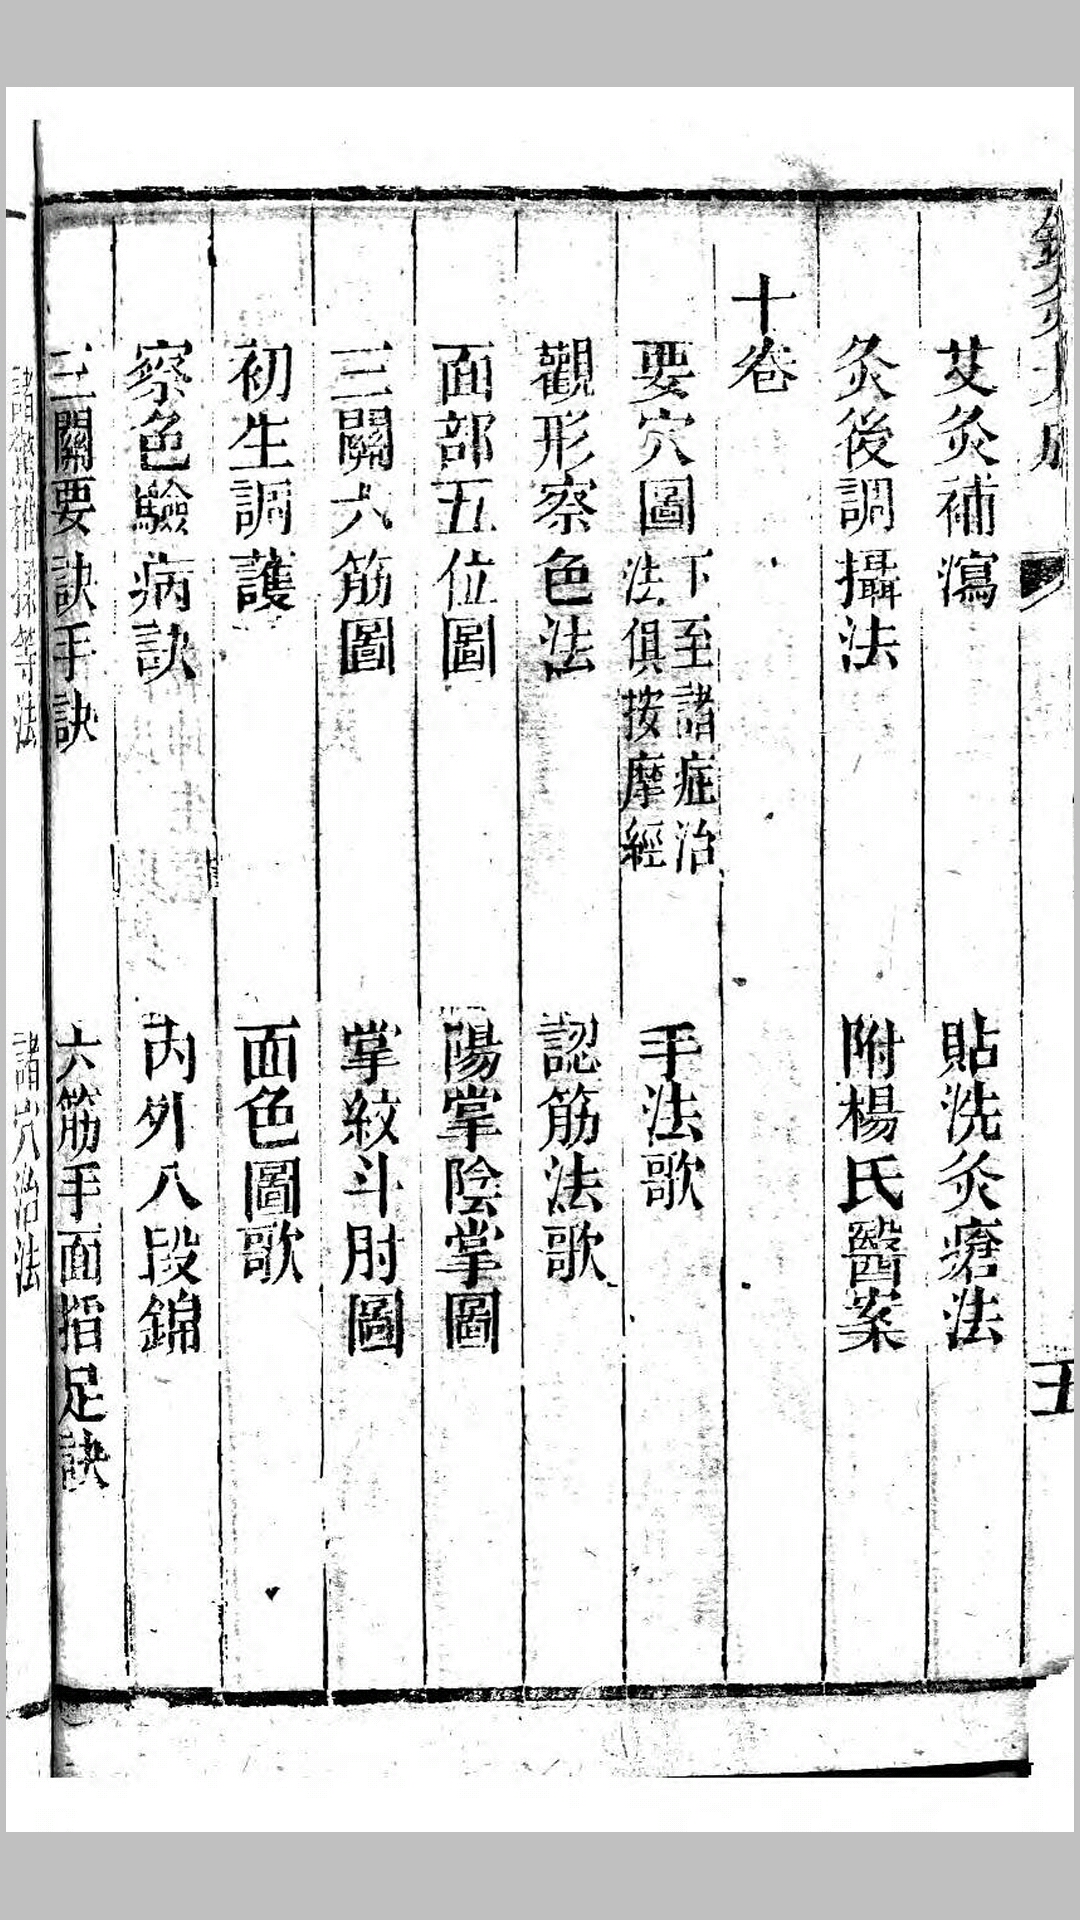 艾灸補瀉 貼洗灸瘡法
灸後調攝法 附楊氏醫案
十卷
要穴圖 下至諸症治法俱按摩經 手法歌
觀形察色法 認筋法歌
面部五位圖 陽掌陰掌圖
三關六筋圖 掌紋斗肘圖
初生調護 面色圖歌
察色驗病訣 內外八段錦
三關要訣手訣 六筋手面指足訣
諸驚推揉等法 諸穴治法